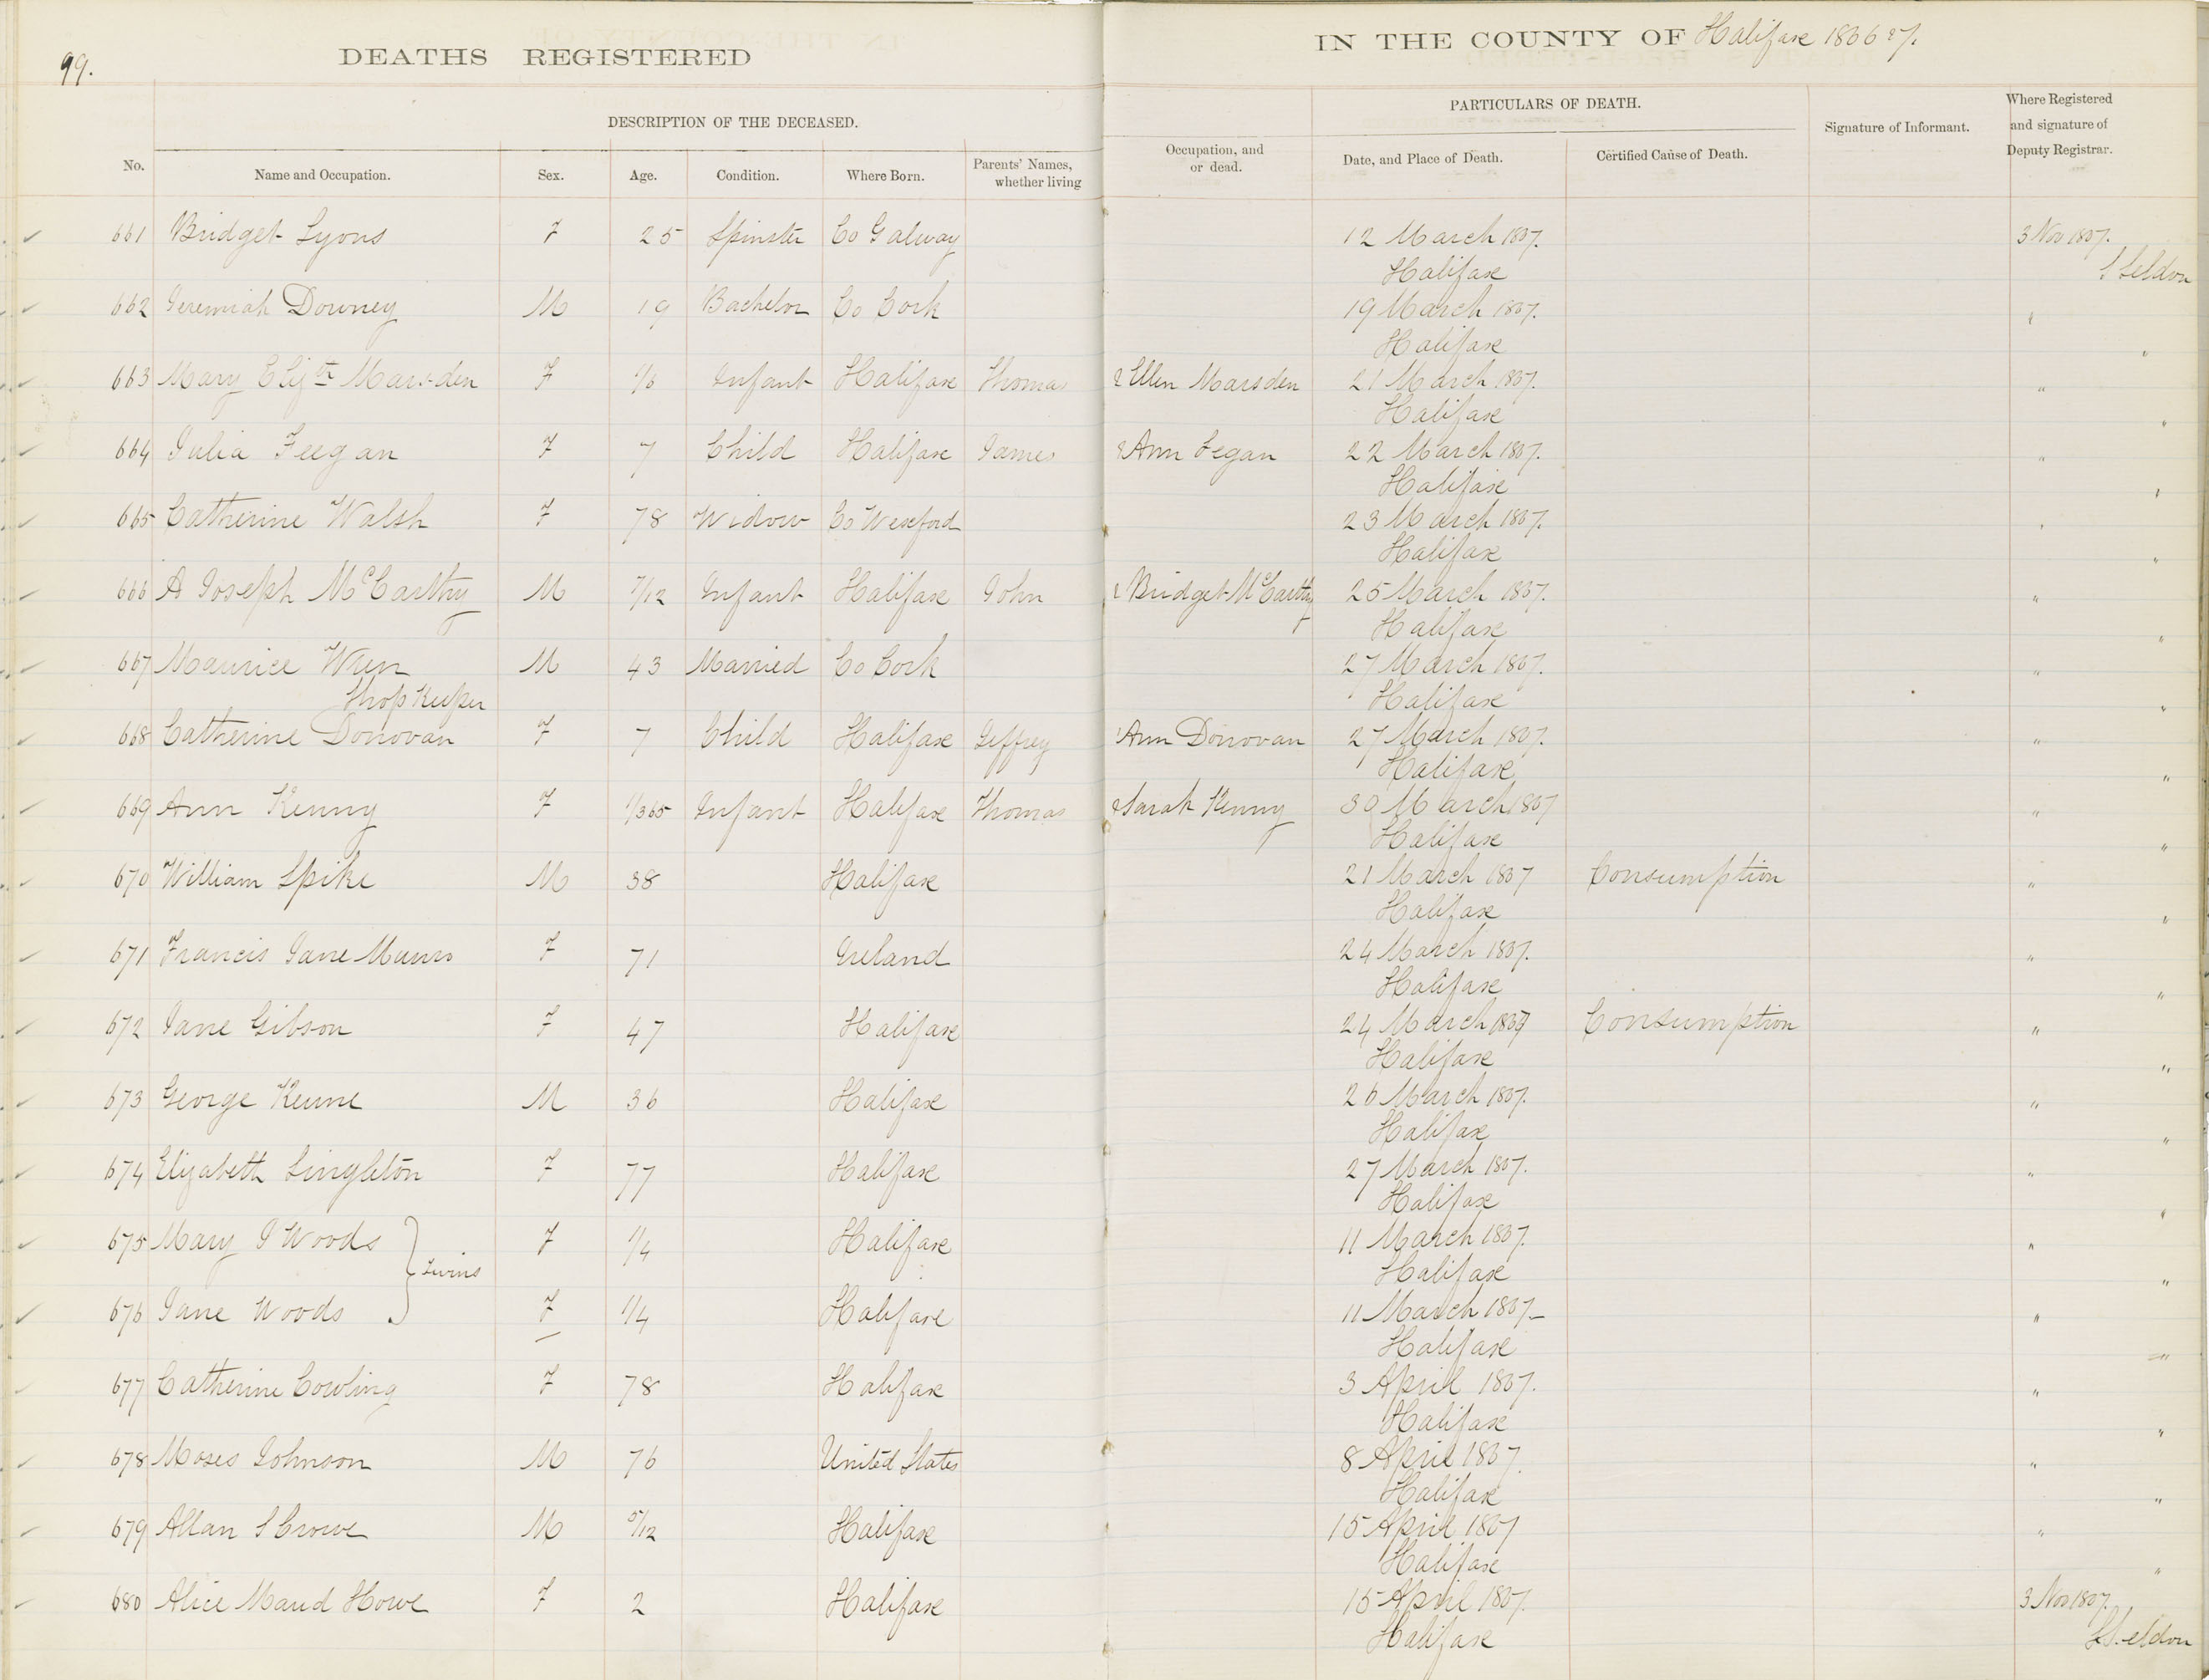 99.
DEATHS REGISTERED IN THE COUNTY OF Halifax 1866 & 7.
DESCRIPTION OF THE DECEASED. PARTICULARS OF DEATH. Signature of Informant. Where Registered and signature of Deputy Registrar.
No. Name and Occupation. Sex. Age. Condition. Where Born. Parents' Names, whether living Occupation, and or dead. Date, and Place of Death. Certified Cause of Death.
661 Bridget Lyons F 25 Spinster Co Galway 12 March 1867. 3 Nov 1867.
Halifax Seldon
662 Jeremiah Downey M 19 Bachelor Co Cork 19 March 1867. "
Halifax "
663 Mary Elizth Marsden F 1/6 Infant Halifax Thomas & Ellen Marsden 21 March 1867. "
Halifax "
664 Julia Feegan F 7 Child Halifax James & Ann Fegan 22 March 1867. "
Halifax "
665 Catherine Walsh F 78 Widow Co Wexford 23 March 1867. "
Halifax "
666 A Joseph McCarthy M 7/12 Infant Halifax John & Bridget McCarthy 25 March 1867. "
Halifax "
667 Maurice Wren M 43 Married Co Cork 27 March 1867. "
Shop Keeper Halifax "
668 Catherine Donovan F 7 Child Halifax Jeffrey & Ann Donovan 27 March 1867. "
Halifax "
669 Ann Kenny F 1/365 Infant Halifax Thomas & Sarah Kenny 30 March 1867 "
Halifax "
670 William Spike M 38 Halifax 21 March 1867 Consumption "
Halifax "
671 Francis Jane Munro F 71 Ireland 24 March 1867. "
Halifax "
672 Jane Gibson F 47 Halifax 24 March 1867 Consumption "
Halifax "
673 George Keune M 36 Halifax 26 March 1867. "
Halifax "
674 Elizabeth Singleton F 77 Halifax 27 March 1867. "
Halifax "
675 Mary J Woods F 1/4 Halifax 11 March 1867. "
Twins Halifax "
676 Jane Woods F 1/4 Halifax 11 March 1867 "
Halifax "
677 Catherine Cowling F 78 Halifax 3 April 1867. "
Halifax "
678 Moses Johnson M 76 United States 8 April 1867. "
Halifax "
679 Allan S Crowe M 5/12 Halifax 15 April 1867 "
Halifax "
680 Alice Maud Howe F 2 Halifax 15 April 1867. 3 Nov 1867.
Halifax Seldon